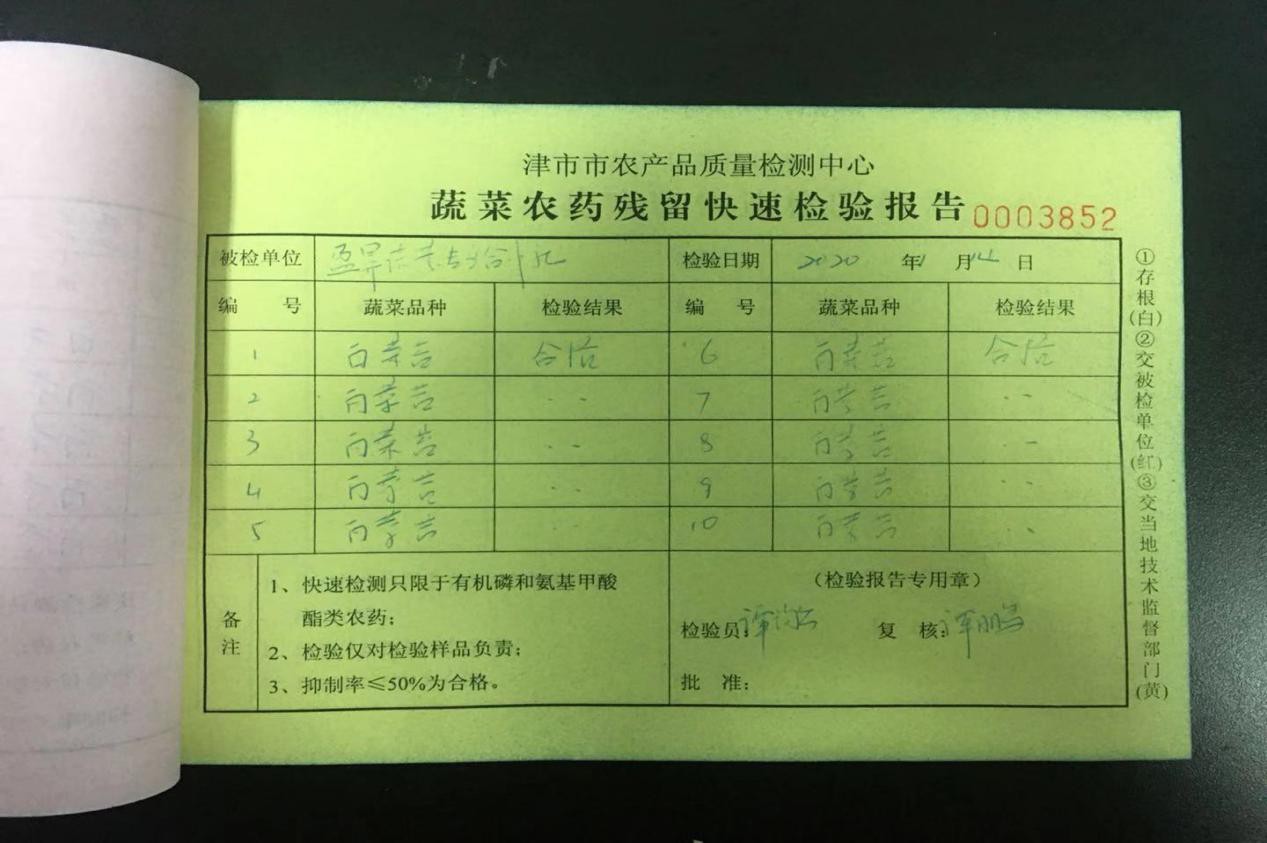 津市市农产品质量检测中心
蔬菜农药残留快速检验报告 0003852
被检单位 检验日期 2020 年 1 月 14 日
编 号 蔬菜品种 检验结果 编 号 蔬菜品种 检验结果
1 白菜苔 合格 6 白菜苔 合格
2 白菜苔 7 白菜苔
3 白菜苔 8 白菜苔
4 白菜苔 9 白菜苔
5 白菜苔 10 白菜苔
备注
1、快速检测只限于有机磷和氨基甲酸
酯类农药;
2、检验仅对检验样品负责;
3、抑制率≤50%为合格。
(检验报告专用章)
检验员: 复 核: 谭鹏
批 准:
①存根(白)②交被检单位(红)③交当地技术监督部门(黄)